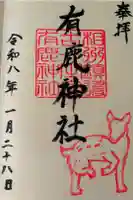 奉拝
有鹿神社
相州海老名
有鹿神社
令和八年一月二十八日